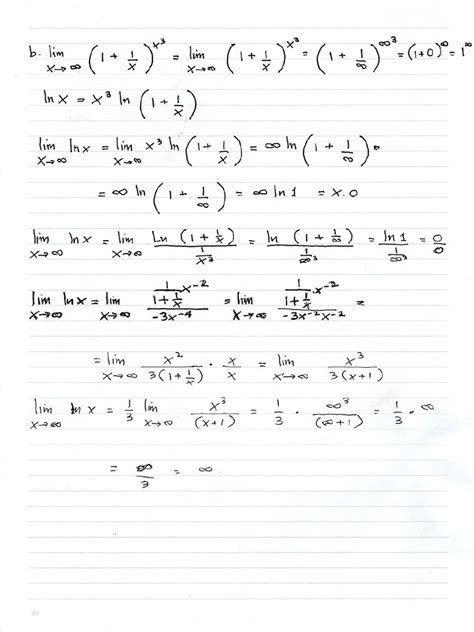 b. lim x→∞ (1 + 1/x)^x³ = lim x→∞ (1 + 1/x)^x³ = (1 + 1/∞)^∞³ = (1+0)^∞ = 1^∞
ln x = x³ ln (1 + 1/x)
lim x→∞ ln x = lim x→∞ x³ ln (1 + 1/x) = ∞ ln (1 + 1/∞)
= ∞ ln (1 + 1/∞) = ∞ ln 1 = x.0
lim x→∞ ln x = lim x→∞ Ln (1 + 1/x) / (1/x³) = ln (1 + 1/∞) / (1/∞³) = ln 1 / (1/∞³) = 0/0
lim x→∞ ln x = lim x→∞ (1/(1 + 1/x) · x⁻²) / (-3x⁻⁴) = lim x→∞ (1/(1 + 1/x) · x⁻²) / (-3x⁻²x⁻²) =
= lim x→∞ x² / 3(1 + 1/x) · x/x = lim x→∞ x³ / 3(x+1)
lim x→∞ ln x = 1/3 lim x→∞ x³ / (x+1) = 1/3 · ∞³ / (∞+1) = 1/3 · ∞
= ∞/3 = ∞